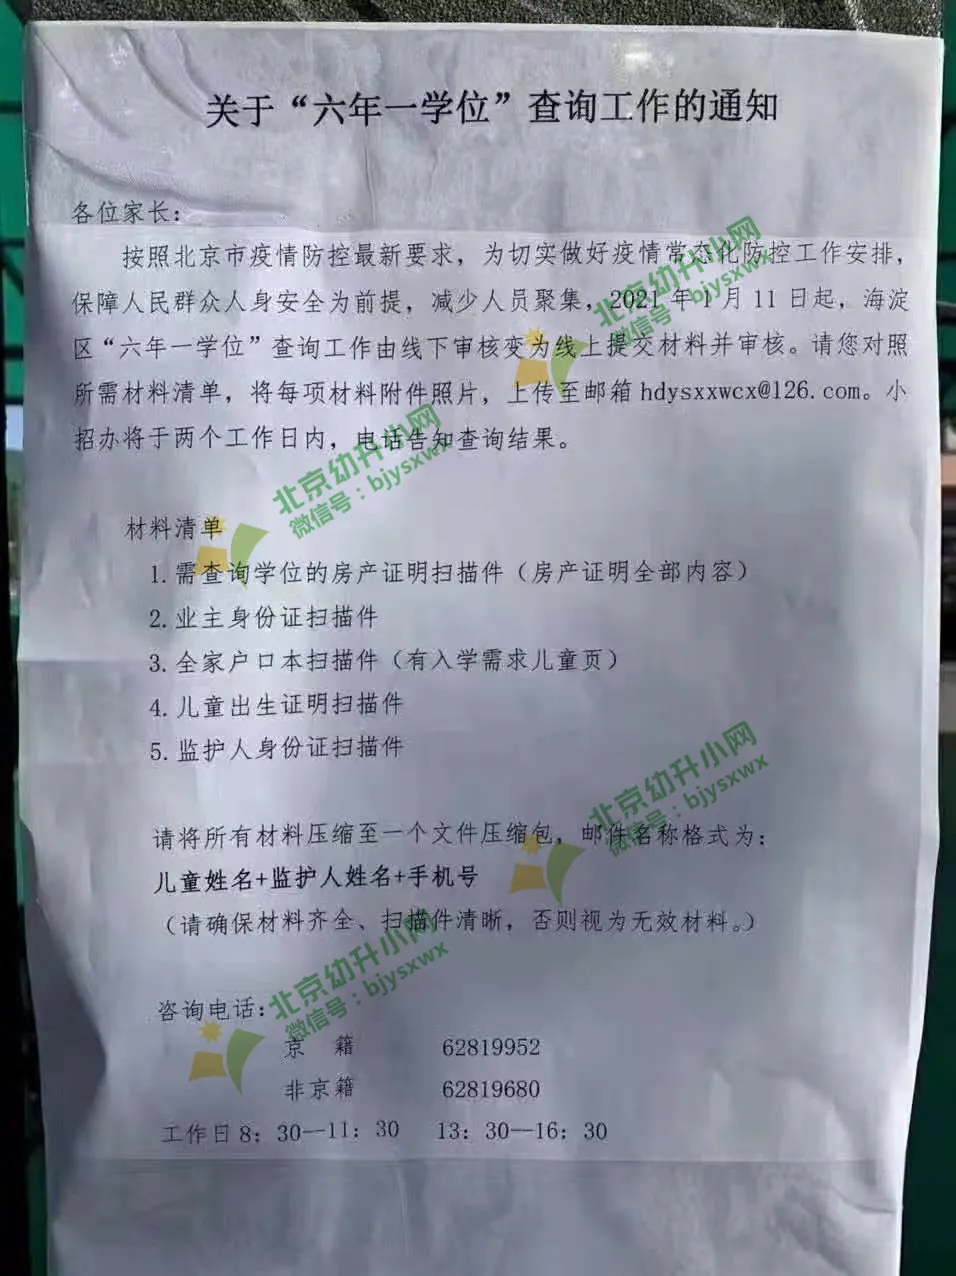 关于“六年一学位”查询工作的通知
各位家长：
按照北京市疫情防控最新要求，为切实做好疫情常态化防控工作安排，
保障人民群众人身安全为前提，减少人员聚集，2021年1月11日起，海淀
区“六年一学位”查询工作由线下审核变为线上提交材料并审核。请您对照
所需材料清单，将每项材料附件照片，上传至邮箱hdysxxwcx@126.com。小
招办将于两个工作日内，电话告知查询结果。
北京幼升小网
微信号：bjysxwx
北京幼升小网
微信号：bjysxwx
材料清单
1.需查询学位的房产证明扫描件（房产证明全部内容）
2.业主身份证扫描件
3.全家户口本扫描件（有入学需求儿童页）
4.儿童出生证明扫描件
5.监护人身份证扫描件
北京幼升小网
微信号：bjysxwx
请将所有材料压缩至一个文件压缩包，邮件名称格式为：
儿童姓名+监护人姓名+手机号
（请确保材料齐全、扫描件清晰，否则视为无效材料。）
北京幼升小网
微信号：bjysxwx
咨询电话：
京 籍 62819952
非京籍 62819680
工作日8：30—11：30 13：30—16：30